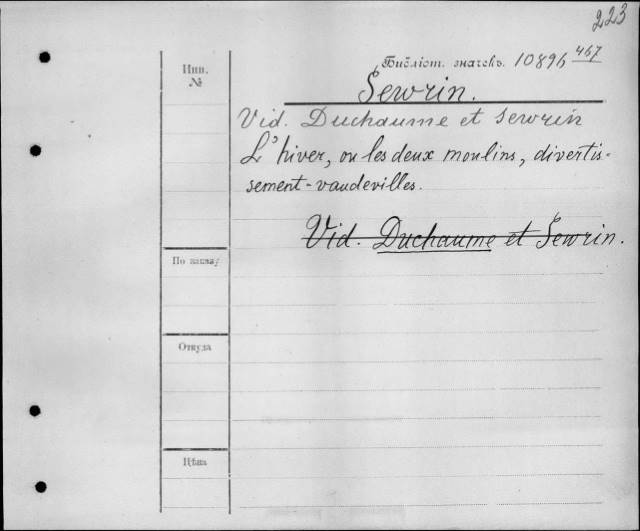 223
Инв.
№
Библіот. значекъ. 10896 467
Sewrin.
Vid. Duchaume et Sewrin
L'hiver, ou les deux moulins, divertis-
sement-vaudevilles.
Vid. Duchaume et Sewrin.
По заказу
Откуда
Цѣна